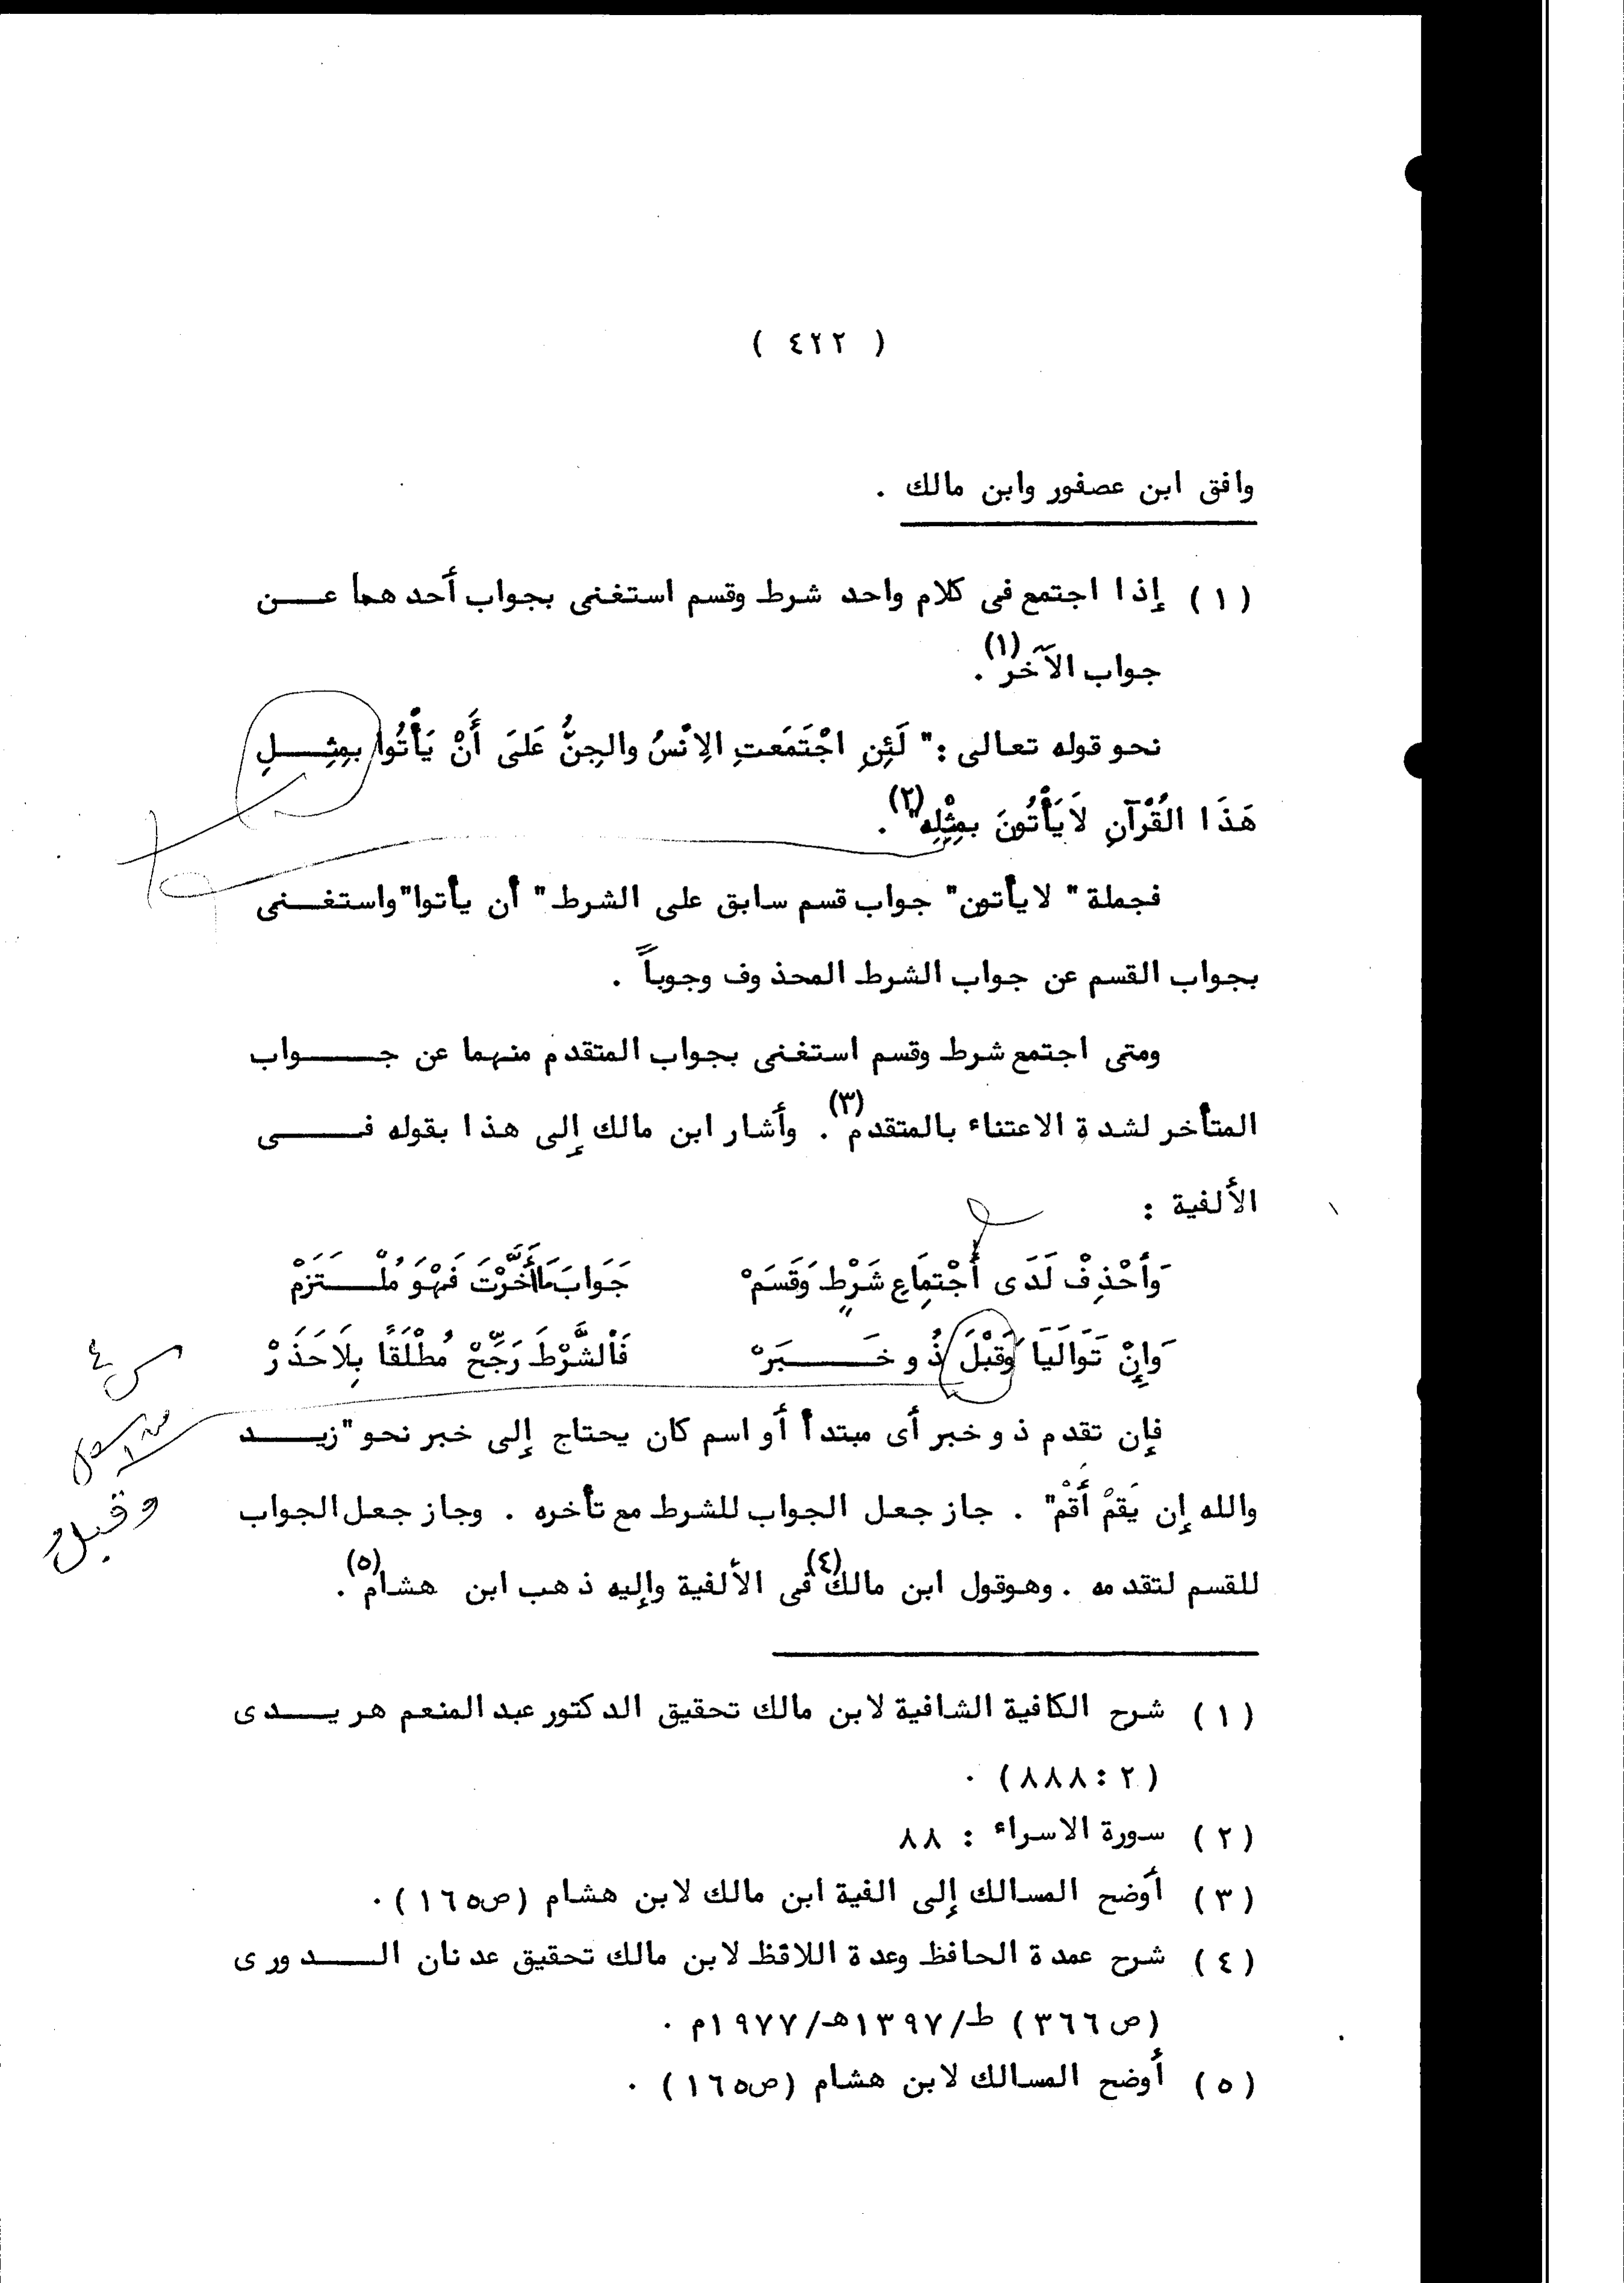 ( ٤٢٢ )
وافق ابن عصفور وابن مالك .
( ١ ) إذا اجتمع فى كلام واحد شرط وقسم استغنى بجواب أحدهما عـــن
جواب الآخر (١) .
نحو قوله تعالى :" لَئِنِ اجْتَمَعتِ الِانْسُ والجِنُّ عَلىَ أَنْ يَأْتُوا بمِثِـــلِ
هَذَا القُرْآنِ لاَيَأْتُونَ بمِثْلِهِ" (٢) .
فجملة " لايأتون" جواب قسم سابق على الشرط " أن يأتوا"واستغـــنى
بجواب القسم عن جواب الشرط المحذوف وجوباً .
ومتى اجتمع شرط وقسم استغنى بجواب المتقدم منهما عن جـــــواب
المتأخر لشدة الاعتناء بالمتقدم (٣) . وأشار ابن مالك إلى هذا بقوله فـــــى
الألفية :
وَأحْذِفْ لَدَى أجْتِمَاعِ شَرْطٍ وَقَسَمْ جَوَابَ مَاأَخَّرْتَ فَهْوَ مُلْـــتَزَمْ
وَإِنْ تَوَالَيَا وَقَبْلَ ذُو خَـــــبَرْ فَالشَّرْطَ رَجِّحْ مُطْلَقًا بِلَا حَذَرْ
فإن تقدم ذو خبر أى مبتدأ أو اسم كان يحتاج إلى خبر نحو "زيـــد
والله إن يَقمْ أَقمْ" . جاز جعل الجواب للشرط مع تأخره . وجاز جعل الجواب
للقسم لتقدمه . وهوقول ابن مالك (٤) فى الألفية وإليه ذهب ابن هشام (٥) .
س ٤
وقبل
( ١ ) شرح الكافية الشافية لابن مالك تحقيق الدكتور عبد المنعم هريـــدى
( ٢ : ٨٨٨ ) .
( ٢ ) سورة الاسراء : ٨٨
( ٣ ) أوضح المسالك إلى الفية ابن مالك لابن هشام (ص١٦٥ ) .
( ٤ ) شرح عمدة الحافظ وعدة اللافظ لابن مالك تحقيق عدنان الـــدورى
(ص٣٦٦ ) ط/١٣٩٧هـ/١٩٧٧م .
( ٥ ) أوضح المسالك لابن هشام (ص١٦٥ ) .